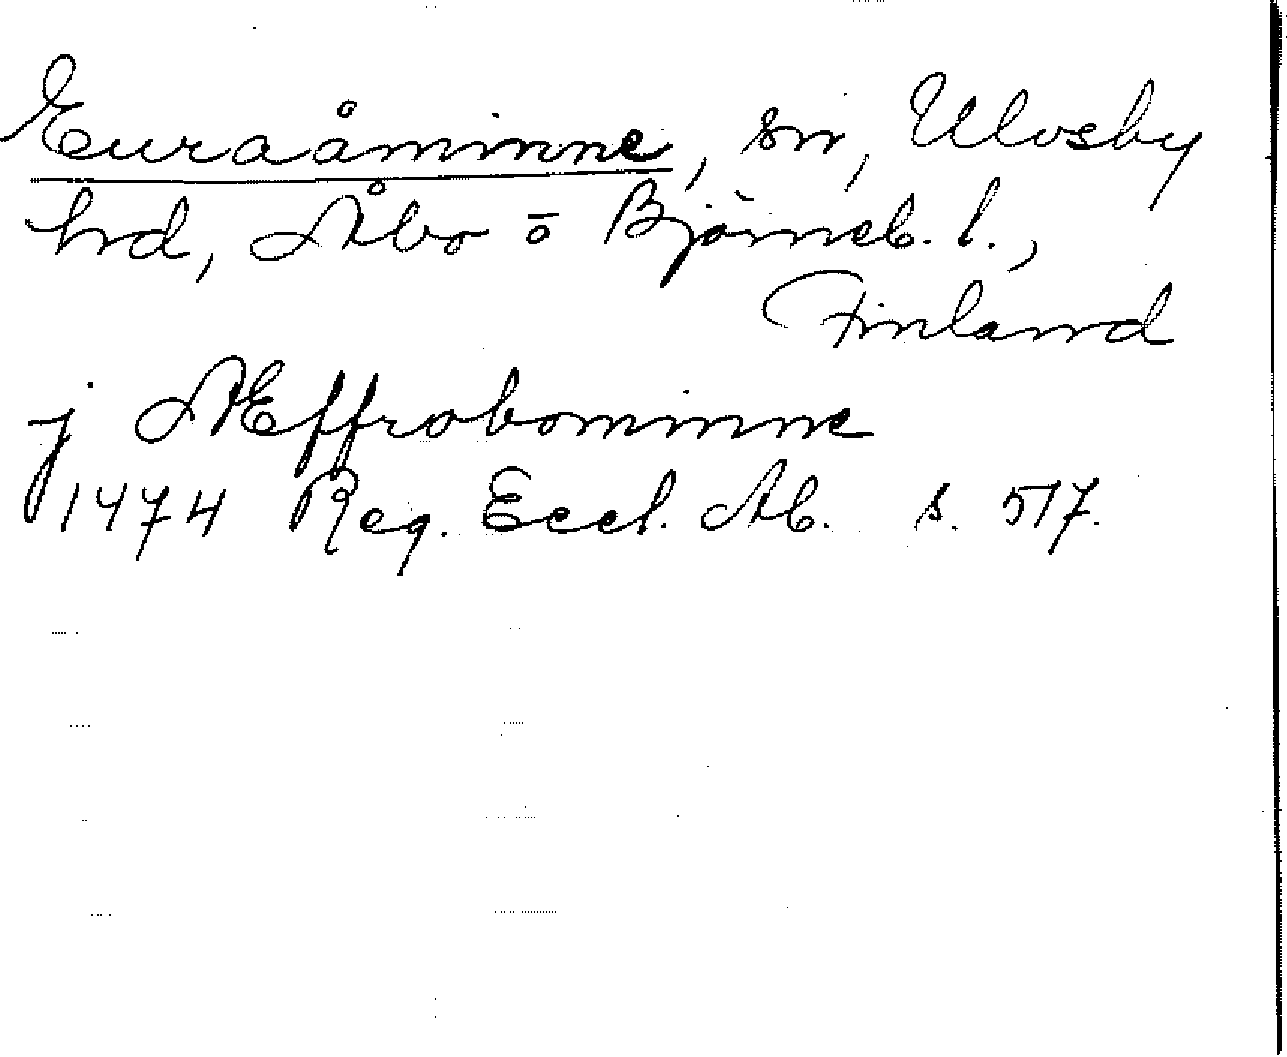 Euraåminne, sn, Ulvsby
hd, Åbo ō Björneb. l.,
Finland
j Æffrabominne
1474 Reg. Eccl. Ab. s. 517.